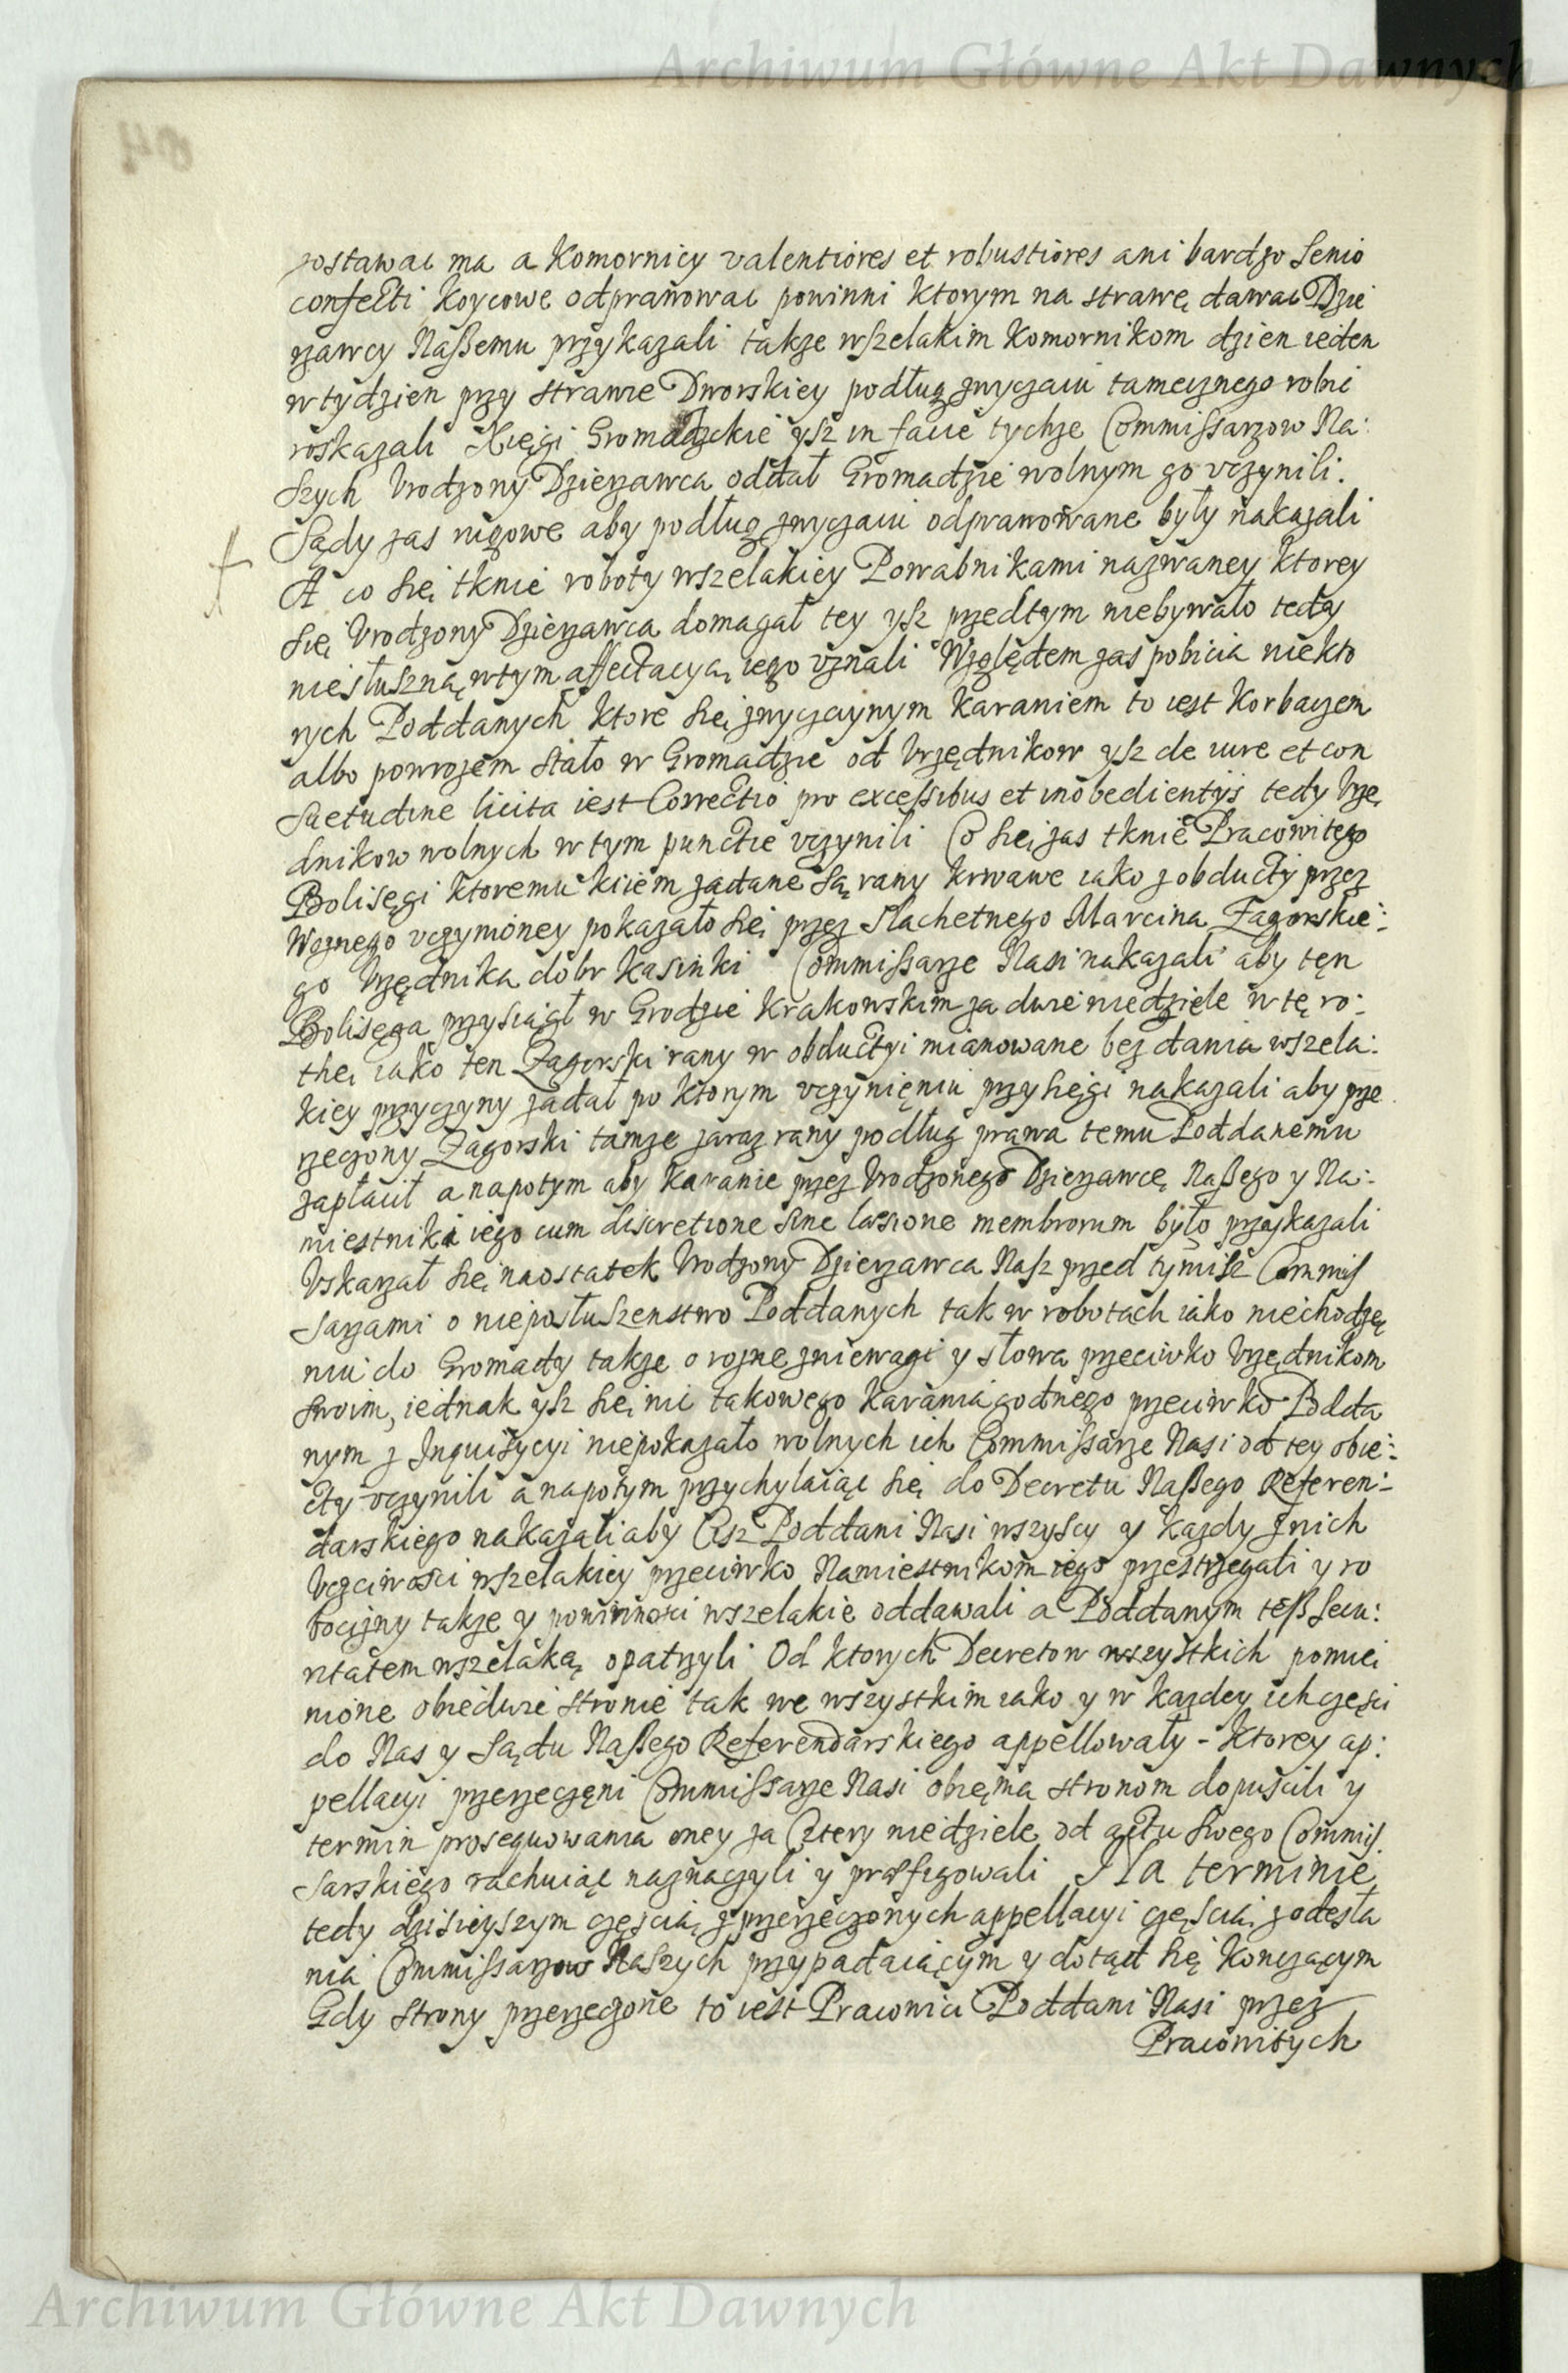 Archiwum Główne Akt Dawnych
zostawac ma a Komornicy valentiores et robustiores ani bardzo Senio
confecti Koycowe odprawowac powinni ktorym na strawę dawac Dzie
rzawcy Naszemu przykazali takze wszelakim Komornikom dzien ieden
w tydzien przy strawie Dworskiey podług zwyczaiu tamecznego robic
roskazali Xięgi Gromadzkie ysz in facie tychze Commissarzow Na:
szych Urodzony Dzierzawca oddał Gromadzie wolnym go uczynili.
Sądy zas rugowe aby podług zwyczaiu odprawowane były nakazali
A co się tknie roboty wszelakiey Powabnikami nazwaney ktorey
się Urodzony Dzierzawca domagał tey ysz przedtym niebywało tedy
niesłuszną w tym affectacyą iego uznali Względem zas pobicia niekto
rych Poddanych ktore się zwyczaynym karaniem to iest Korbaczem
albo powrozem stało w Gromadzie od Urzędnikow ysz de iure et con
suetudine licita iest Correctio pro excessibus et inobedientijs tedy Urzę
dnikow wolnych w tym punctie uczynili Co się zas tknie Pracowitego
Bolisęgi ktoremu kiiem zadane są rany krwawe iako z obducty przez
Woznego uczynioney pokazało się przez Slachetnego Marcina Zagorskie:
go Urzędnika dobr Kasinki Commissarze Nasi nakazali aby tęn
Bolisęga przysiągł w Grodzie Krakowskim za dwie niedziele w tę ro:
thę iako ten Zagorski rany w obductyi mianowane bez dania wszela:
kiey przyczyny zadał po ktorym uczynięniu przysięgi nakazali aby prze
rzeczony Zagorski tamze zaraz rany podług prawa temu Poddanemu
zapłacił a napotym aby karanie przez Urodzonego Dzierzawcę Naszego y Na:
miestnika iego cum discretione sine lasione membrorum było przykazali
Uskarzał się naostatek Urodzony Dzierzawca Nasz przed tymisz Commis
sarzami o nieposłuszenstwo Poddanych tak w robotach iako niechodzę
niu do Gromady takze o rozne zniewagi y słowa przeciwko Urzędnikom
swoim, iednak ysz się nic takowego karania godnego przeciwko Podda
nym z Inquizycyi niepokazało wolnych ich Commissarze Nasi od tey obie:
cty uczynili a napotym przychylaiąc się do Decretu Naszego Referen:
darskiego nakazali aby Cisz Poddani Nasi wszyscy y kazdy z nich
Uczciwosci wszelakiey przeciwko Namiestnikom iego przestrzegali y ro
bocizny takze y powinnosci wszelakie oddawali a Poddanym tesz Secu:
ritatem wszelaką opatrzyli Od ktorych Decretow wszystkich pomie
nione obiedwie stronie tak we wszystkim iako y w kazdey ich częsci
do Nas y Sądu Naszego Referendarskiego appellowały - Ktorey ap:
pellacyi przerzeczęni Commissarze Nasi obięma stronom dopuscili y
termin prosequowania oney za Cztery niedziele od actu swego Commis
sarskiego rachuiąc naznaczyli y praefigowali Na terminie
tedy dzisieyszym częscią z przerzeczonych appellacyi częscią z odesła
nia Commissarzow Naszych przypadaiącym y dotąd się konczącym
Gdy strony przerzeczone to iest Pracowici Poddani Nasi przez
Pracowitych
Archiwum Główne Akt Dawnych